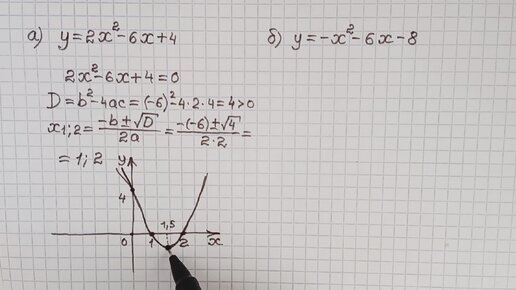 а) y=2x²-6x+4
б) y=-x²-6x-8
2x²-6x+4=0
D=b²-4ac=(-6)²-4·2·4=4>0
x1;2=(-b±√D)/2a=(-(-6)±√4)/2·2=
=1;2
y
4
1,5
0 1 2 x